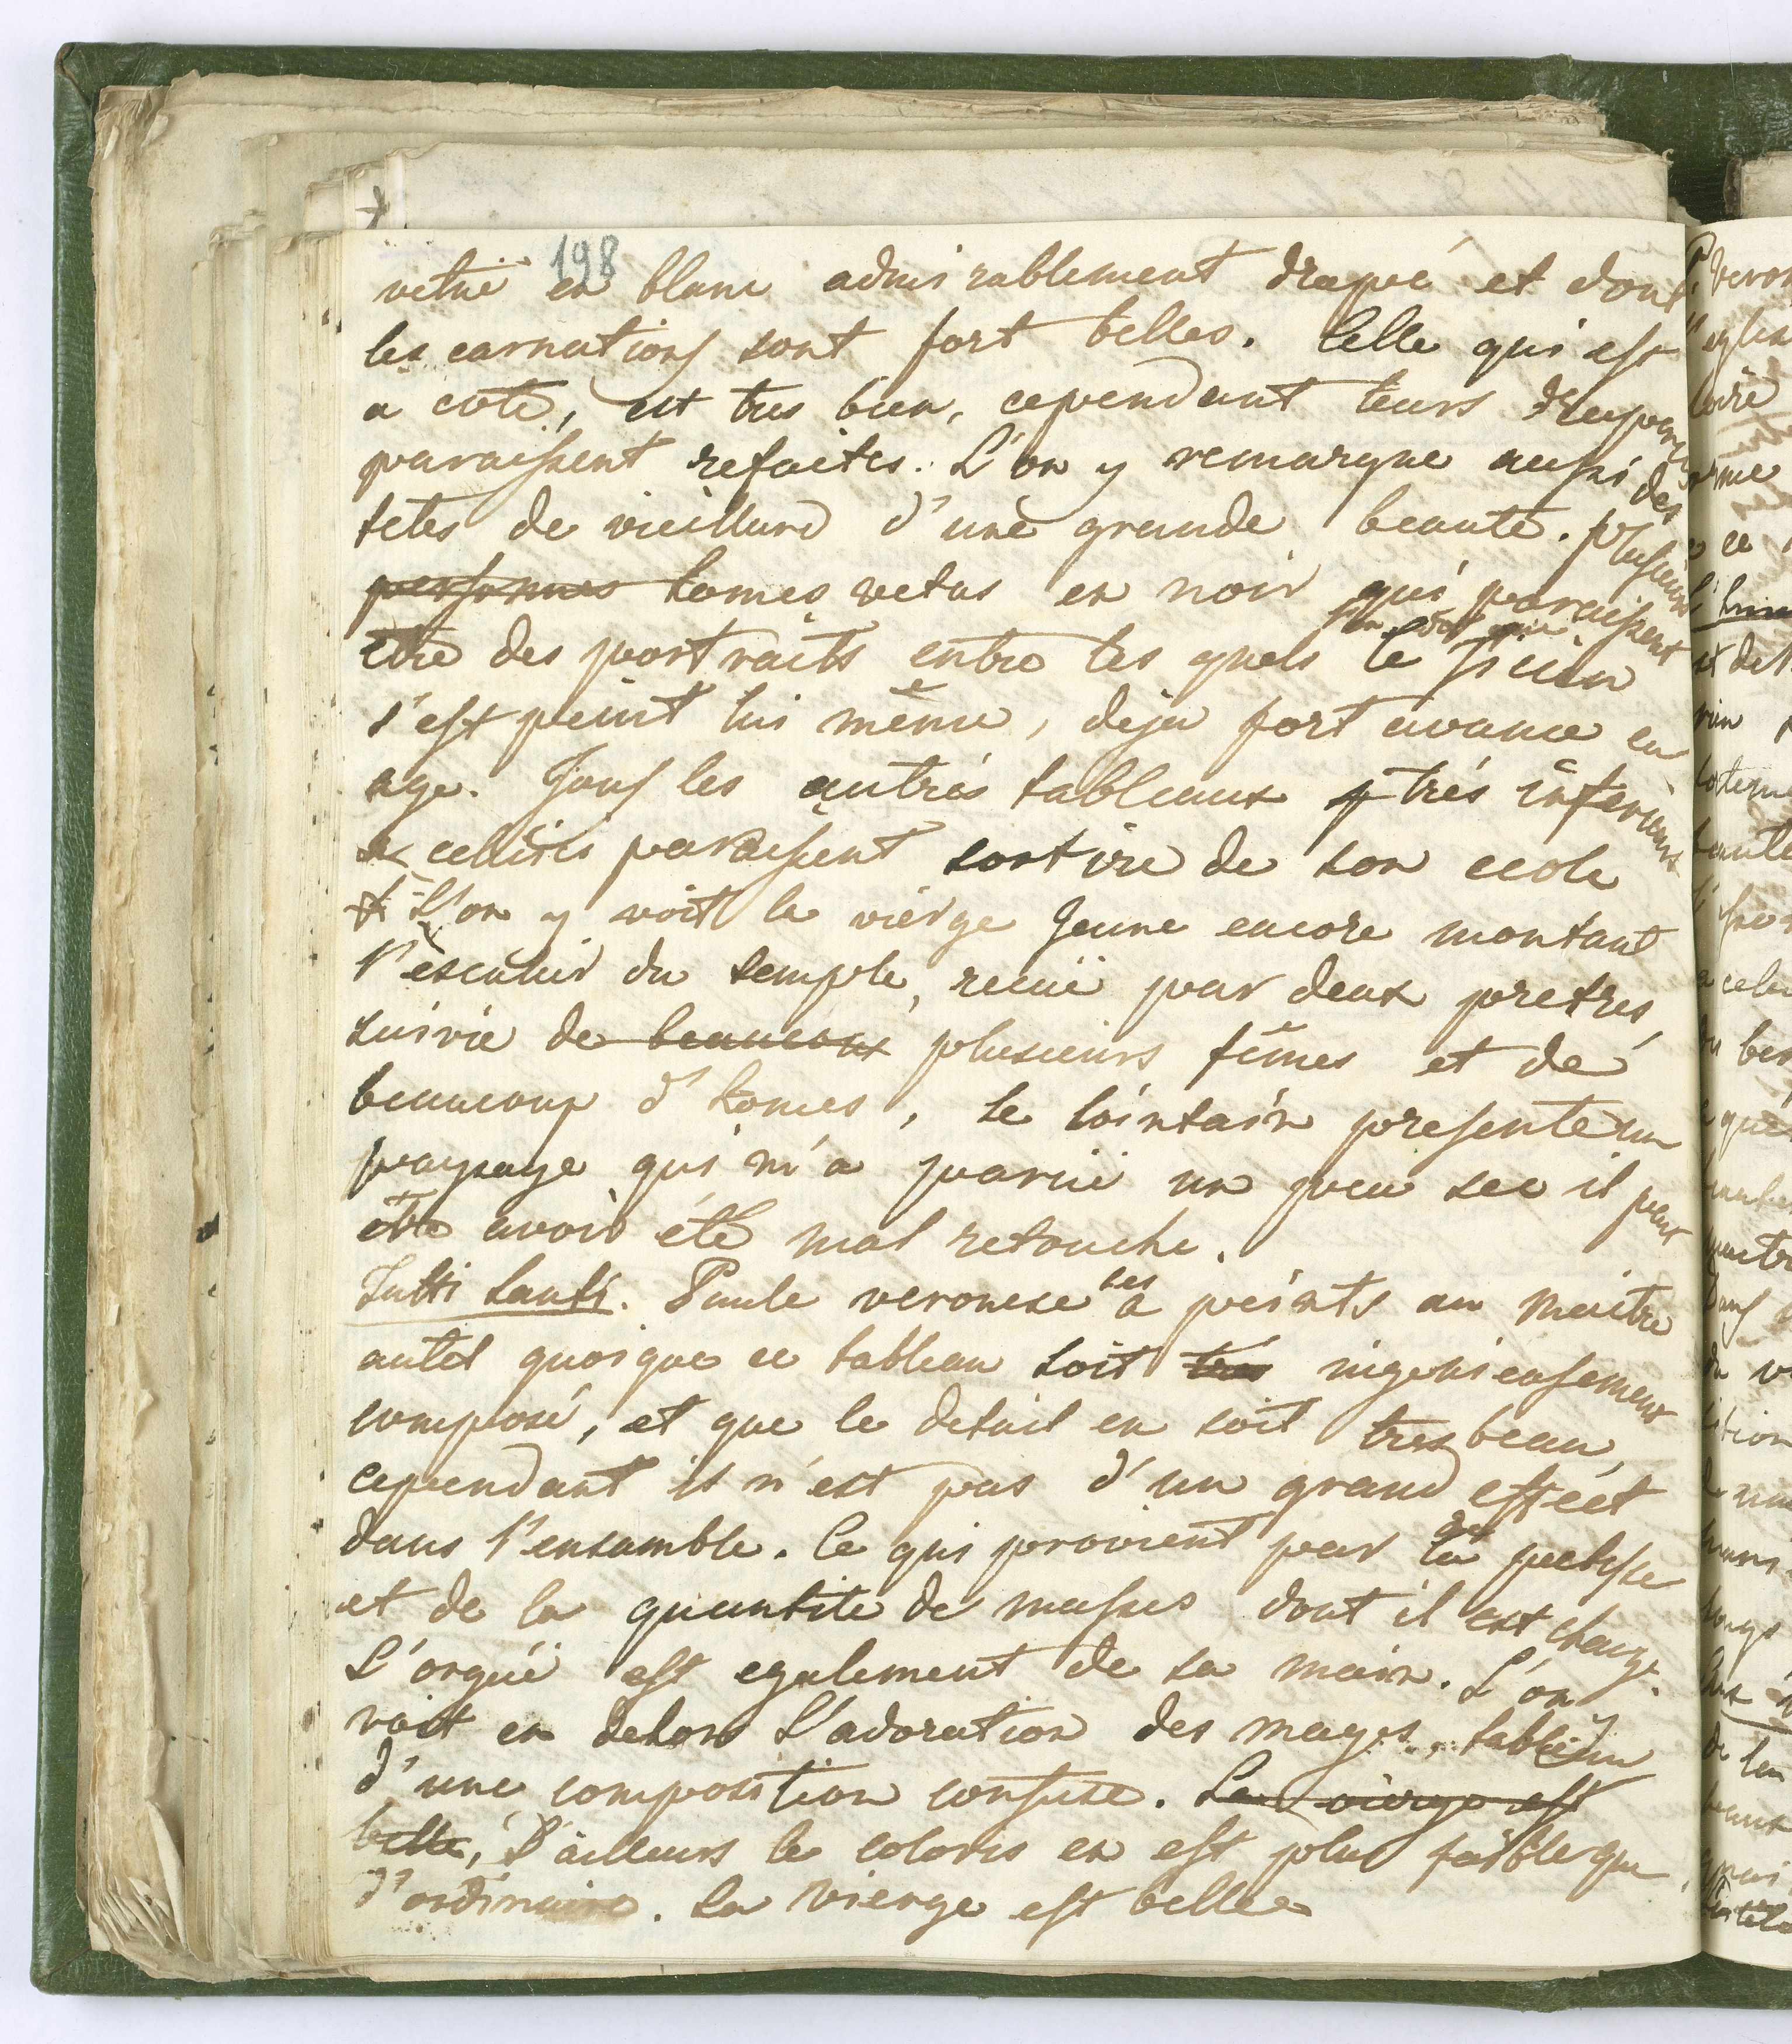 198
vetuë en blanc admirablement drapé et dont
les carnations sont fort belles. Celle qui est
a coté, est tres bien, cependant leurs draperies
paraissent refaites. L'on y remarque aussi des
tetes de vieillard d'une grande beauté. plusieurs
personnes homes vetus en noir qui paraissent
être des portraits entre les quels le Titien
s'est peint lui même, deja fort avance en
age. Tous les autres tableaux très inferieurs
a celuici paraissent sortire de son ecole
L'on y voit la vierge jeune encore montant
l'escalier du temple, recuë par deux pretres,
suivie de beaucoup plusieurs fêmes et de
beaucoup d'homes, le lointain presente un
paysage qui m'a paruë un peu sec il peut
être avoir été mal retouche.
Tutti Santi. Paule veronese les a peints au maitre
autel quoique ce tableau soit très ingenieusement
composé, et que le detail en soit tres beau,
cependant il n'est pas d'un grand efféct
dans l'ensamble. Ce qui provient par la petitsse
et de la quantité de masses dont il est charge.
L'orgue est egalement de sa main. L'on
voit en dehors l'adoration des mages, tableau
d'une composition confuse. La vierge est
belle, D'ailleurs le coloris en est plus faible que
d'ordinaire. La vierge est belle